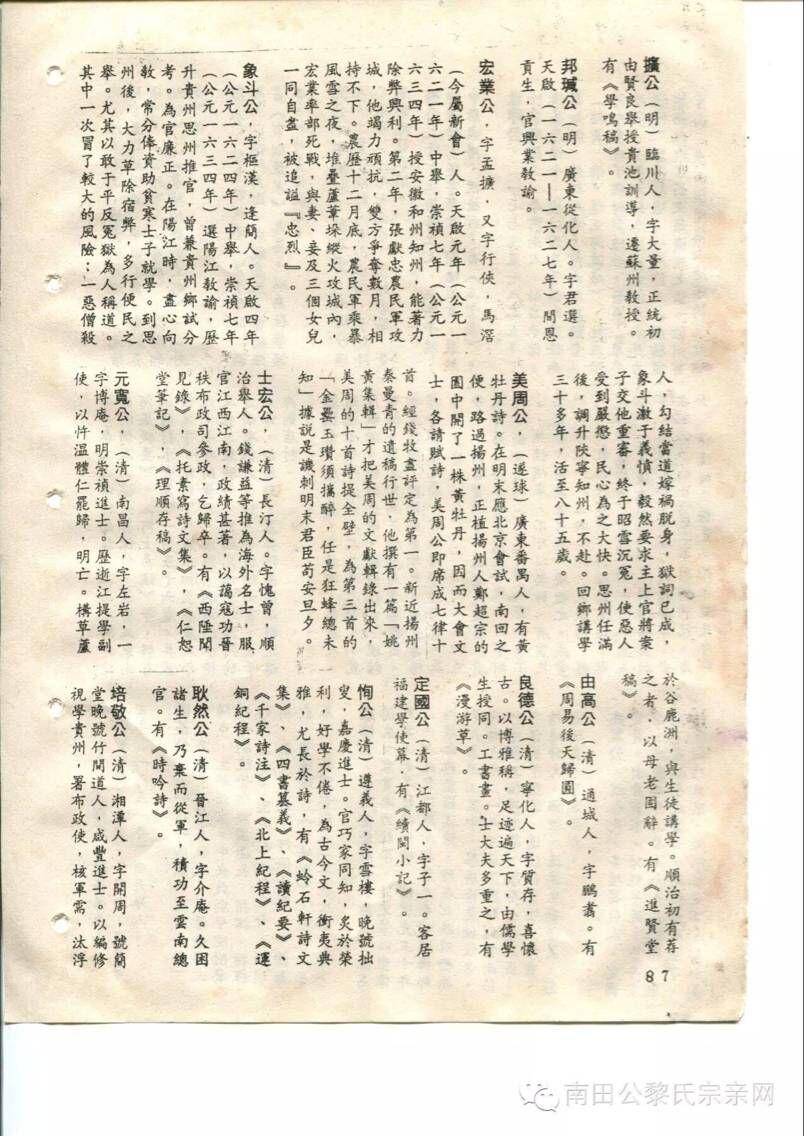 擴公（明）臨川人，字大量，正統初
由賢良舉授貴池訓導，遷蘇州教授。
有《學鳴稿》。
邦瑊公（明）廣東從化人。字君選。
天啟（一六二一—一六二七年）間恩
貢生，官興業敎諭。
宏業公，字孟擴，又字行俠，馬滘
（今屬新會）人。天啟元年（公元一
六二一年）中舉，崇禎七年（公元一
六三四年）授安徽和州知州，能著力
除弊興利。第二年，張獻忠農民軍攻
城，他竭力頑抗，雙方爭奪數月，相
持不下。農歷十二月底，農民軍乘暴
風雪之夜，堆疊蘆葦垛縱火攻城內，
宏業率部死戰，與妻、妾及三個女兒
一同自盡，被追謚『忠烈』。
象斗公，字樞漢，逢簡人。天啟四年
（公元一六二四年）中舉，崇禎七年
（公元一六三四年）選陽江敎諭，歷
升貴州思州推官，曾兼貴州鄉試分
考。為官廉正。在陽江時，盡心向
敎，常分俸資助貧寒士子就學。到思
州後，大力革除宿弊，多行便民之
舉。尤其以敢于平反冤獄為人稱道。
其中一次冒了較大的風險：一惡僧殺
人，勾結當道嫁禍脫身，獄詞已成，
象斗激于義憤，毅然要求主上官將案
子交他重審，終于昭雪沉冤，使惡人
受到嚴懲，民心為之大快。思州任滿
後，調升陝寧知州，不赴。回鄉講學
三十多年，活至八十五歲。
美周公，（遂球）廣東番禺人，有黃
牡丹詩。在明末應北京會試，南回之
便，路過揚州，正植揚州人鄭超宗的
園中開了一株黃牡丹，因而大會文
士，各請賦詩，美周公即席成七律十
首。經錢牧盦評定為第一。新近揚州
秦曼青的遺稿行世，他撰有一篇「姚
黃集輯」才把美周的文獻輯錄出來，
美周的十首詩提全壁，為第三首的
「金罍玉瓚須攜醉，任是狂蜂總未
知」據說是譏刺明末君臣苟安旦夕。
士宏公，（清）長汀人。字愧曾，順
治舉人。錢謙益等推為海外名士，服
官江西江南，政績甚著，以蕩寇功晉
秩布政司參政，乞歸卒。有《西陲聞
見錄》，《托素寫詩文集》，《仁恕
堂筆記》，《理順存稿》。
元寬公，（清）南昌人，字左岩，一
字博庵，明崇禎進士。歷逝江提學副
使，以忤溫體仁罷歸，明亡。構草蘆
於谷鹿洲，與生徒講學。順治初有荐
之者，以母老固辭。有《進賢堂
稿》。
由高公（清）通城人，字鵬翥。有
《周易後天歸圖》。
良德公（清）寧化人，字質存，喜懷
古。以博雅稱，足迹遍天下，由儒學
生授同。工書畫。士大夫多重之，有
《漫游草》。
定國公（清）江都人，字子一。客居
福建學使幕，有《續閩小記》。
恂公（清）遵義人，字雪樓，晚號拙
叟，嘉慶進士。官巧家同知，炙於榮
利，好學不倦，為古今文，衝夷典
雅，尤長於詩，有《蛉石軒詩文
集》、《四書蒫義》、《讀紀要》、
《千家詩注》、《北上紀程》、《運
銅紀程》。
耿然公（清晉江人，字介庵。久困
諸生，乃棄而從軍，積功至雲南總
官。有《時吟詩》。
培敬公（清）湘潭人，字開周，號簡
堂晚號竹間道人，咸豐進士。以編修
視學貴州，署布政使，核軍需，汰浮
87
南田公黎氏宗亲网